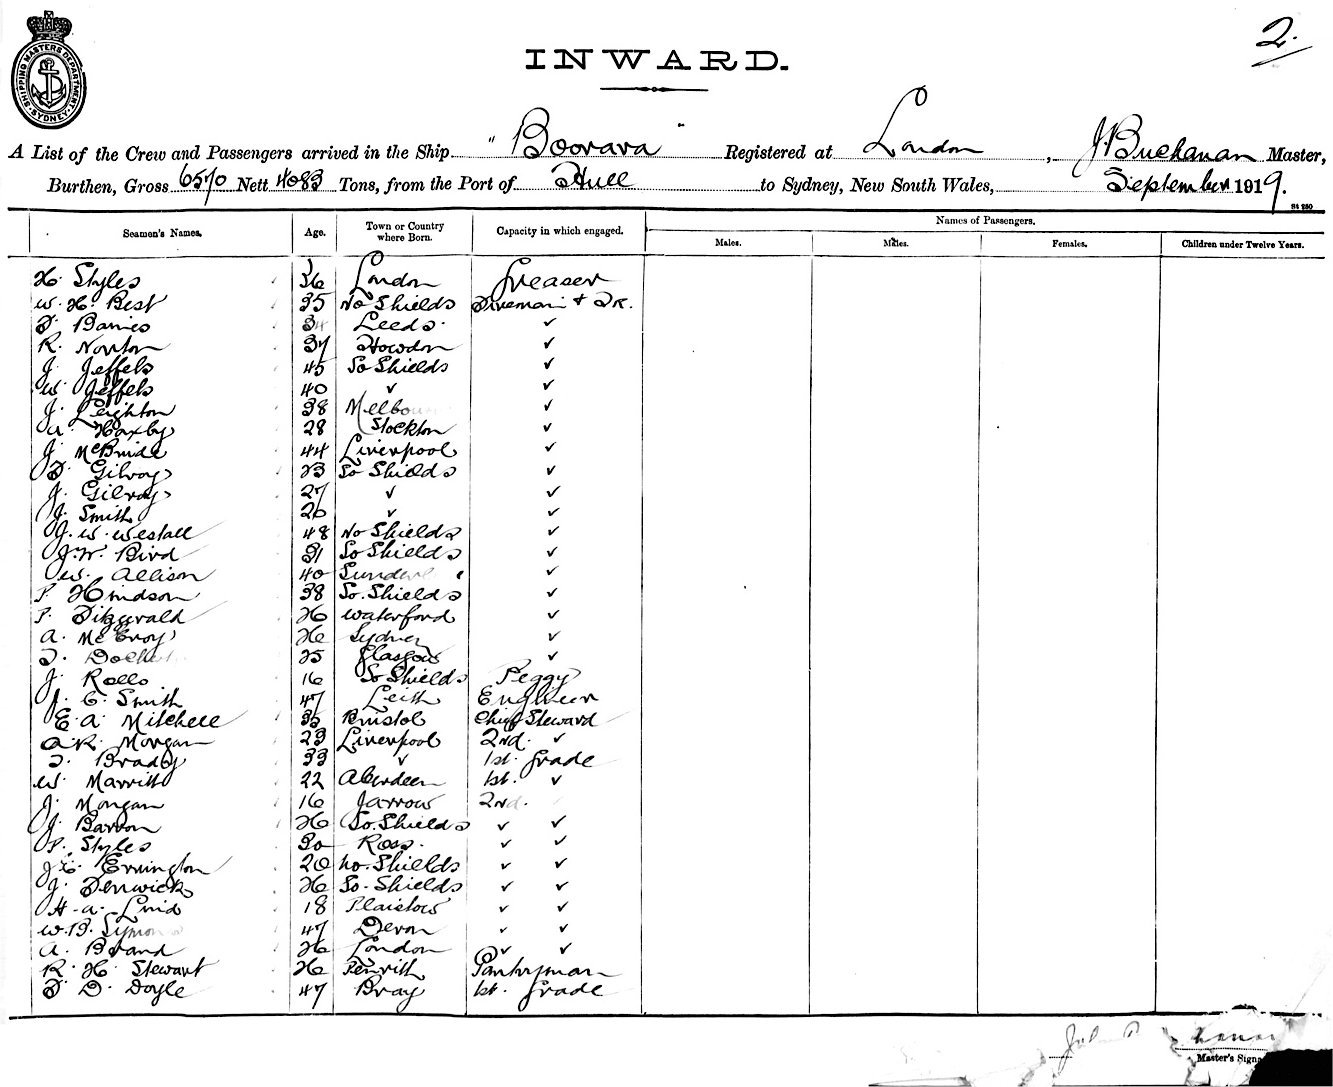 2.
SHIPPING MASTERS DEPARTMENT SYDNEY
INWARD.
A List of the Crew and Passengers arrived in the Ship " Boorara " Registered at London, J Buchanan Master,
Burthen, Gross 6570 Nett 4083 Tons, from the Port of Hull to Sydney, New South Wales, September 1919.
Seamen's Names. Age. Town or Country where Born. Capacity in which engaged. Names of Passengers.
Males. Males. Females. Children under Twelve Years.
H. Styles 36 London Greaser
W. H. Best 35 No Shields Fireman & Tr.
34 Leeds. ✓
R. Norton 37 Howdon ✓
J. Jeffels 45 So Shields ✓
W. Jeffels 40 ✓ ✓
J. Leighton 38 Melbou ✓
A. Haxby 28 Stockton ✓
J. McBride 44 Liverpool ✓
Gilroy 23 So Shields ✓
J. Gilroy 27 ✓ ✓
J. Smith 26 ✓ ✓
J. W. Westall 48 No Shields ✓
J. W. Bird 31 So Shields ✓
W. Allison 40 Sunderl ✓
P. Hindson 38 So. Shields ✓
P. Fitzgerald 26 Waterford ✓
A. McEvoy 26 Sydney ✓
25 Glasgow ✓
J. Rollo 16 So Shields Peggy
J. C. Smith 47 Leith Engineer
E. A. Mitchell 35 Bristol Chief Steward
A. R. Morgan 23 Liverpool 2nd. ✓
Brady 33 ✓ 1st. Grade
W. Marritt 22 Aberdeen 1st. ✓
J. Morgan 16 Jarrow 2nd.
J. Barron 26 So. Shields ✓ ✓
P. Styles 30 Ross. ✓ ✓
J. C. Ernington 20 No. Shields ✓ ✓
J. Fenwick 26 So. Shields ✓ ✓
H. A. 18 Plaistow ✓ ✓
W. B. 47 Devon ✓ ✓
A. Brand 26 London ✓ ✓
R. H. Stewart 26 Penrith Pantryman
F. D. Doyle 47 Bray 1st. Grade
John
Master's Signa